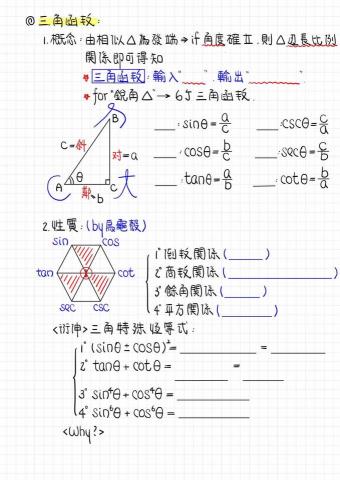 ◎三角函數:
1.概念:由相似△為發端→if角度確立,則△邊長比例
關係即可得知
★三角函數:輸入"____",輸出"____".
★for"銳角△"→6個三角函數.
___:sinθ=a/c ___:cscθ=c/a
___:cosθ=b/c ___:secθ=c/b
___:tanθ=a/b ___:cotθ=b/a
B
c=斜
对=a
A θ C
鄰=b
大
2.性質:(by烏龜殼)
sin cos
tan 1 cot
sec csc
1°倒數關係(____)
2°商數關係(____)
3°餘角關係(____)
4°平方關係(____)
<衍伸>三角特殊恆等式:
1°(sinθ±cosθ)²=____=____
2°tanθ+cotθ=____=____
3°sin⁴θ+cos⁴θ=____
4°sin⁶θ+cos⁶θ=____
<Why?>